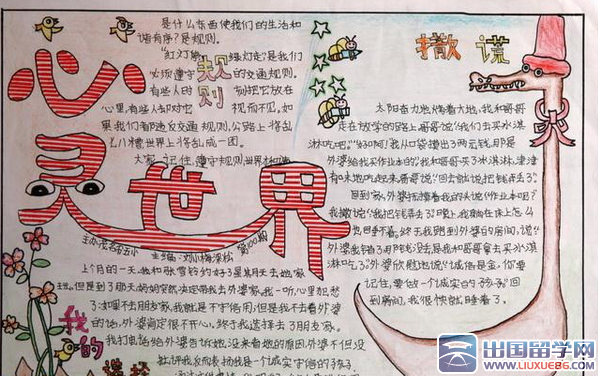 心灵世界
是什么东西使我们的生活和
谐有序?是规则。
"红灯停,绿灯走"是我们
必须遵守规则的交通规则。
有些人时刻把它放在
心里,有些人却对它视而不见。如
果我们都违反交通规则,公路上将乱
七八糟,世界上将乱成一团。
大家记住,遵守规则,世界
主编:刘小梅 第100期
上个月的一天,我和张雪铃约好了星期天去她家
玩,但是到了那天妈妈突然决定带我去外婆家,我一听心里犯愁
了:如果不去朋友家,我就是不守信用;但是我不去看外婆
的话,外婆肯定很不开心。终于我选择去了朋友家。
我打电话给外婆告诉她没来看她的原因,外婆不但没
批评我反而表扬我是一个诚实守信的孩子。
我的
撒谎
太阳奋力地烤着大地,我和哥哥
走在放学的路上,哥哥说:"我们去买冰淇
淋吃吧。""好啊!"我从口袋摸出了两元钱,那是
外婆给我买作业本的。我和哥哥买了冰淇淋,津津
有味地吃起来。哥哥说:"回去就说把钱弄丢了。"
回到家,外婆抚摸着我的头说:"作业本呢?"
我撒说:"我把钱弄丢了。"晚上,我躺在床上怎么
也睡不着。终于我跑到外婆的房间,说:
"外婆我错了,那钱没丢,是我和哥哥拿去买冰淇
淋吃了。"外婆欣慰地说:"诚信是宝,你要
记住,要做一个诚实的好孩子。"回
到房间,我很快就睡着了。
出国留学网
WWW.LIUXUE86.COM